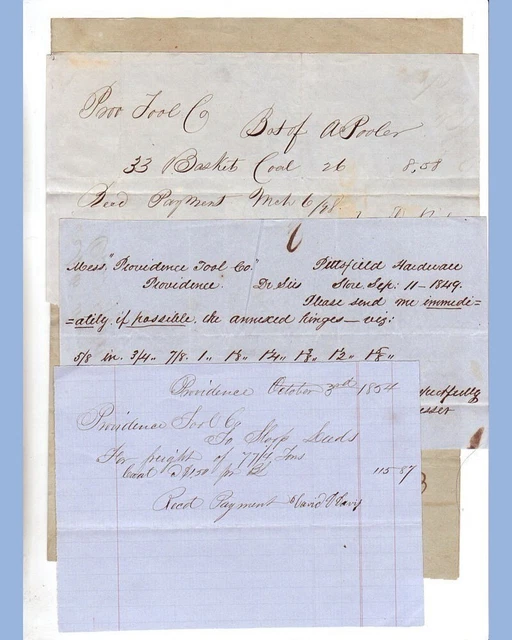 Prov Tool Co
Bot of A Pooler
33 Basket Coal 26 8,58
Recd Payment Mch 6/48
Mess "Providence Tool Co." Pittsfield Hardware
Providence. Dr Sirs Store Sep. 11 - 1849.
Please send me immedi=
=ately, if possible, the annexed hinges — viz:
5/8 in. 3/4 " 7/8 " 1 "
Providence October 3rd 1854
Providence Tool Co
To Sloop Leeds
For freight of 77 1/4 Tons
Coal @ $1.50 pr 115 87
Recd Payment David